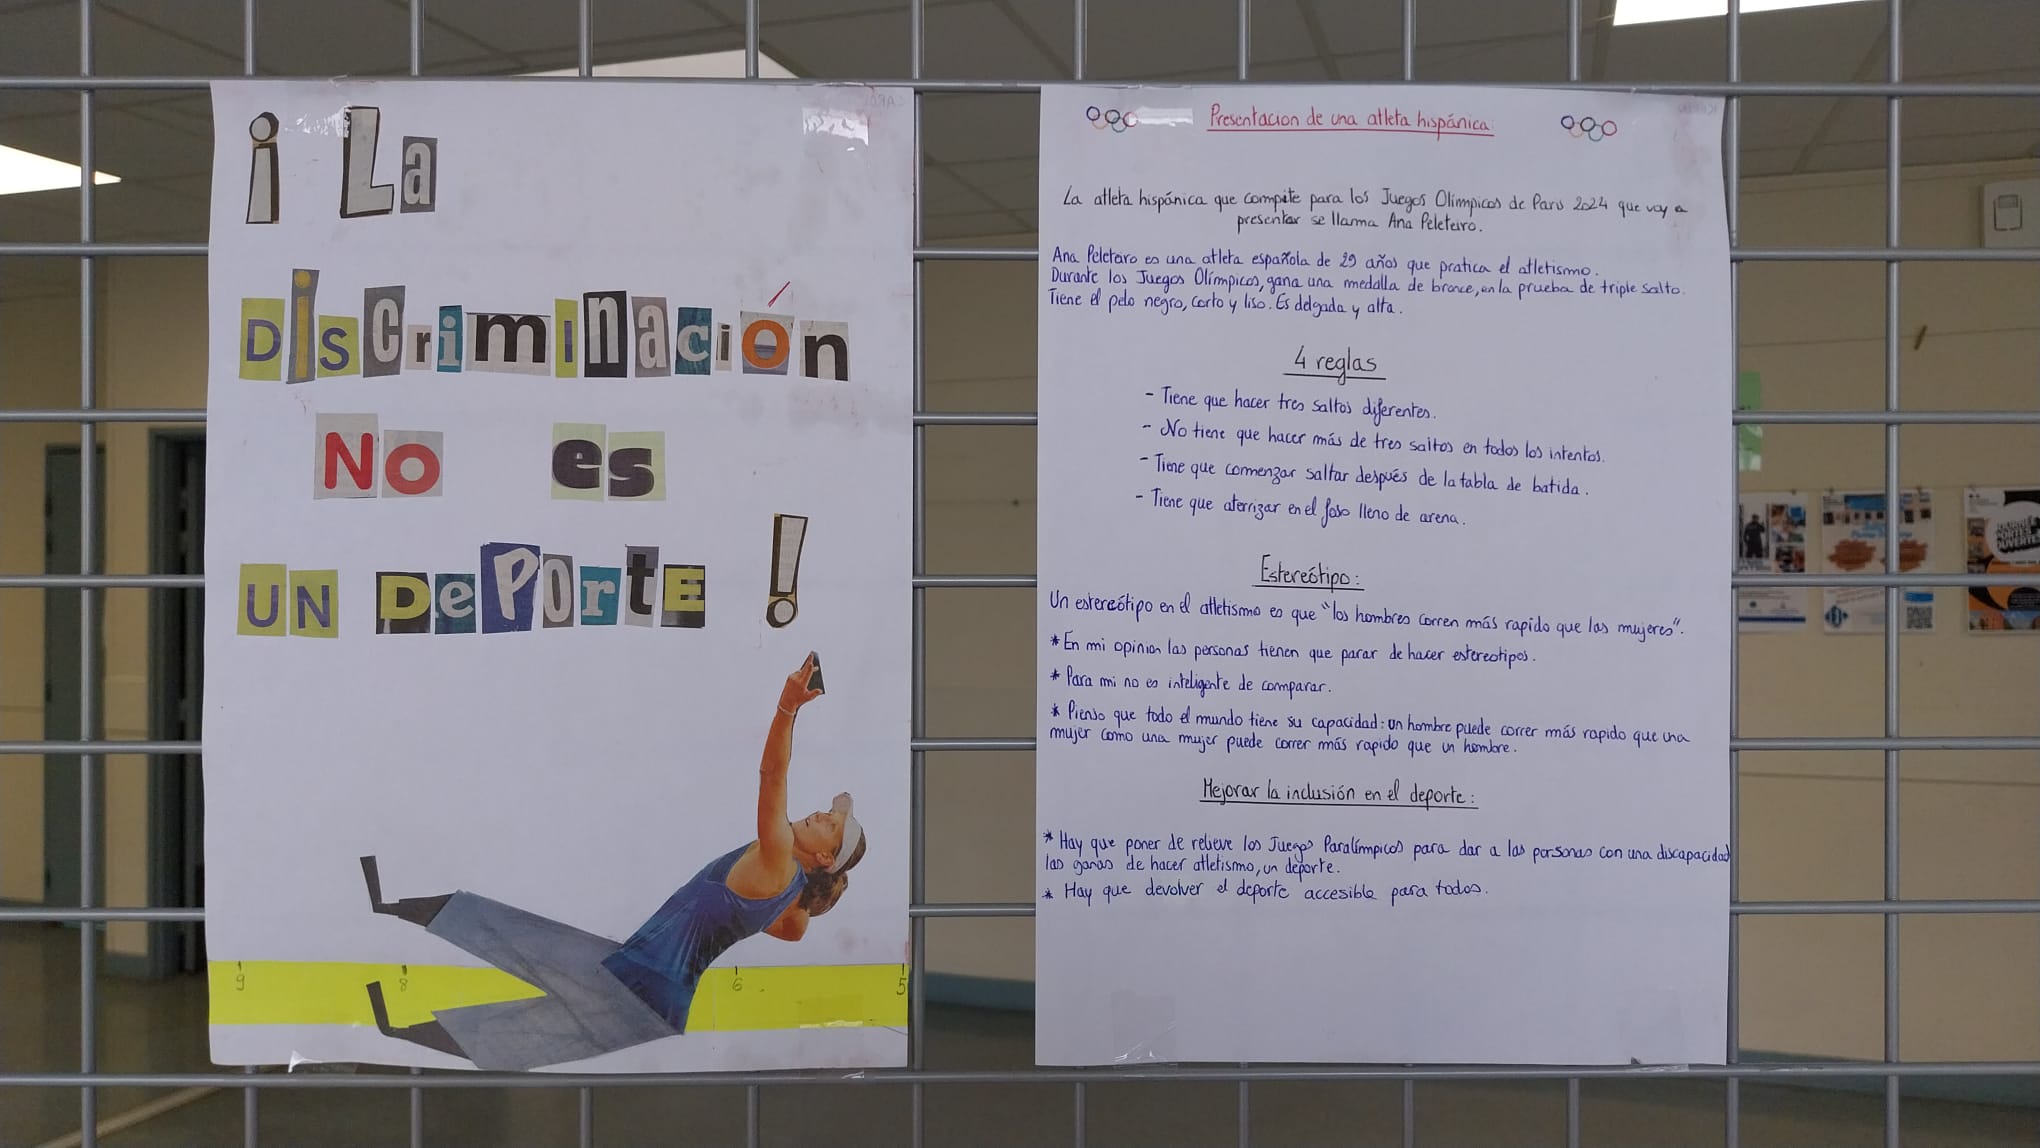 ¡ La
DisCriminación
No es
UN DePOrtE !
9 8 6 5
Presentacion de una atleta hispánica:
La atleta hispánica que compite para los Juegos Olímpicos de Paris 2024 que voy a
presentar se llama Ana Peleteiro.
Ana Peleteiro es una atleta española de 29 años que pratica el atletismo.
Durante los Juegos Olímpicos, gana una medalla de bronce, en la prueba de triple salto.
Tiene el pelo negro, corto y liso. Es delgada y alta.
4 reglas
- Tiene que hacer tres saltos diferentes.
- No tiene que hacer más de tres saltos en todos los intentos.
- Tiene que comenzar saltar después de la tabla de batida.
- Tiene que aterrizar en el foso lleno de arena.
Estereótipo:
Un estereótipo en el atletismo es que "los hombres corren más rapido que las mujeres".
* En mi opinion las personas tienen que parar de hacer estereotipos.
* Para mi no es inteligente de comparar.
* Pienso que todo el mundo tiene su capacidad: un hombre puede correr más rapido que una
mujer como una mujer puede correr más rapido que un hombre.
Mejorar la inclusión en el deporte:
* Hay que poner de relieve los Juegos Paralímpicos para dar a las personas con una discapacidad
las ganas de hacer atletismo, un deporte.
* Hay que devolver el deporte accesible para todos.